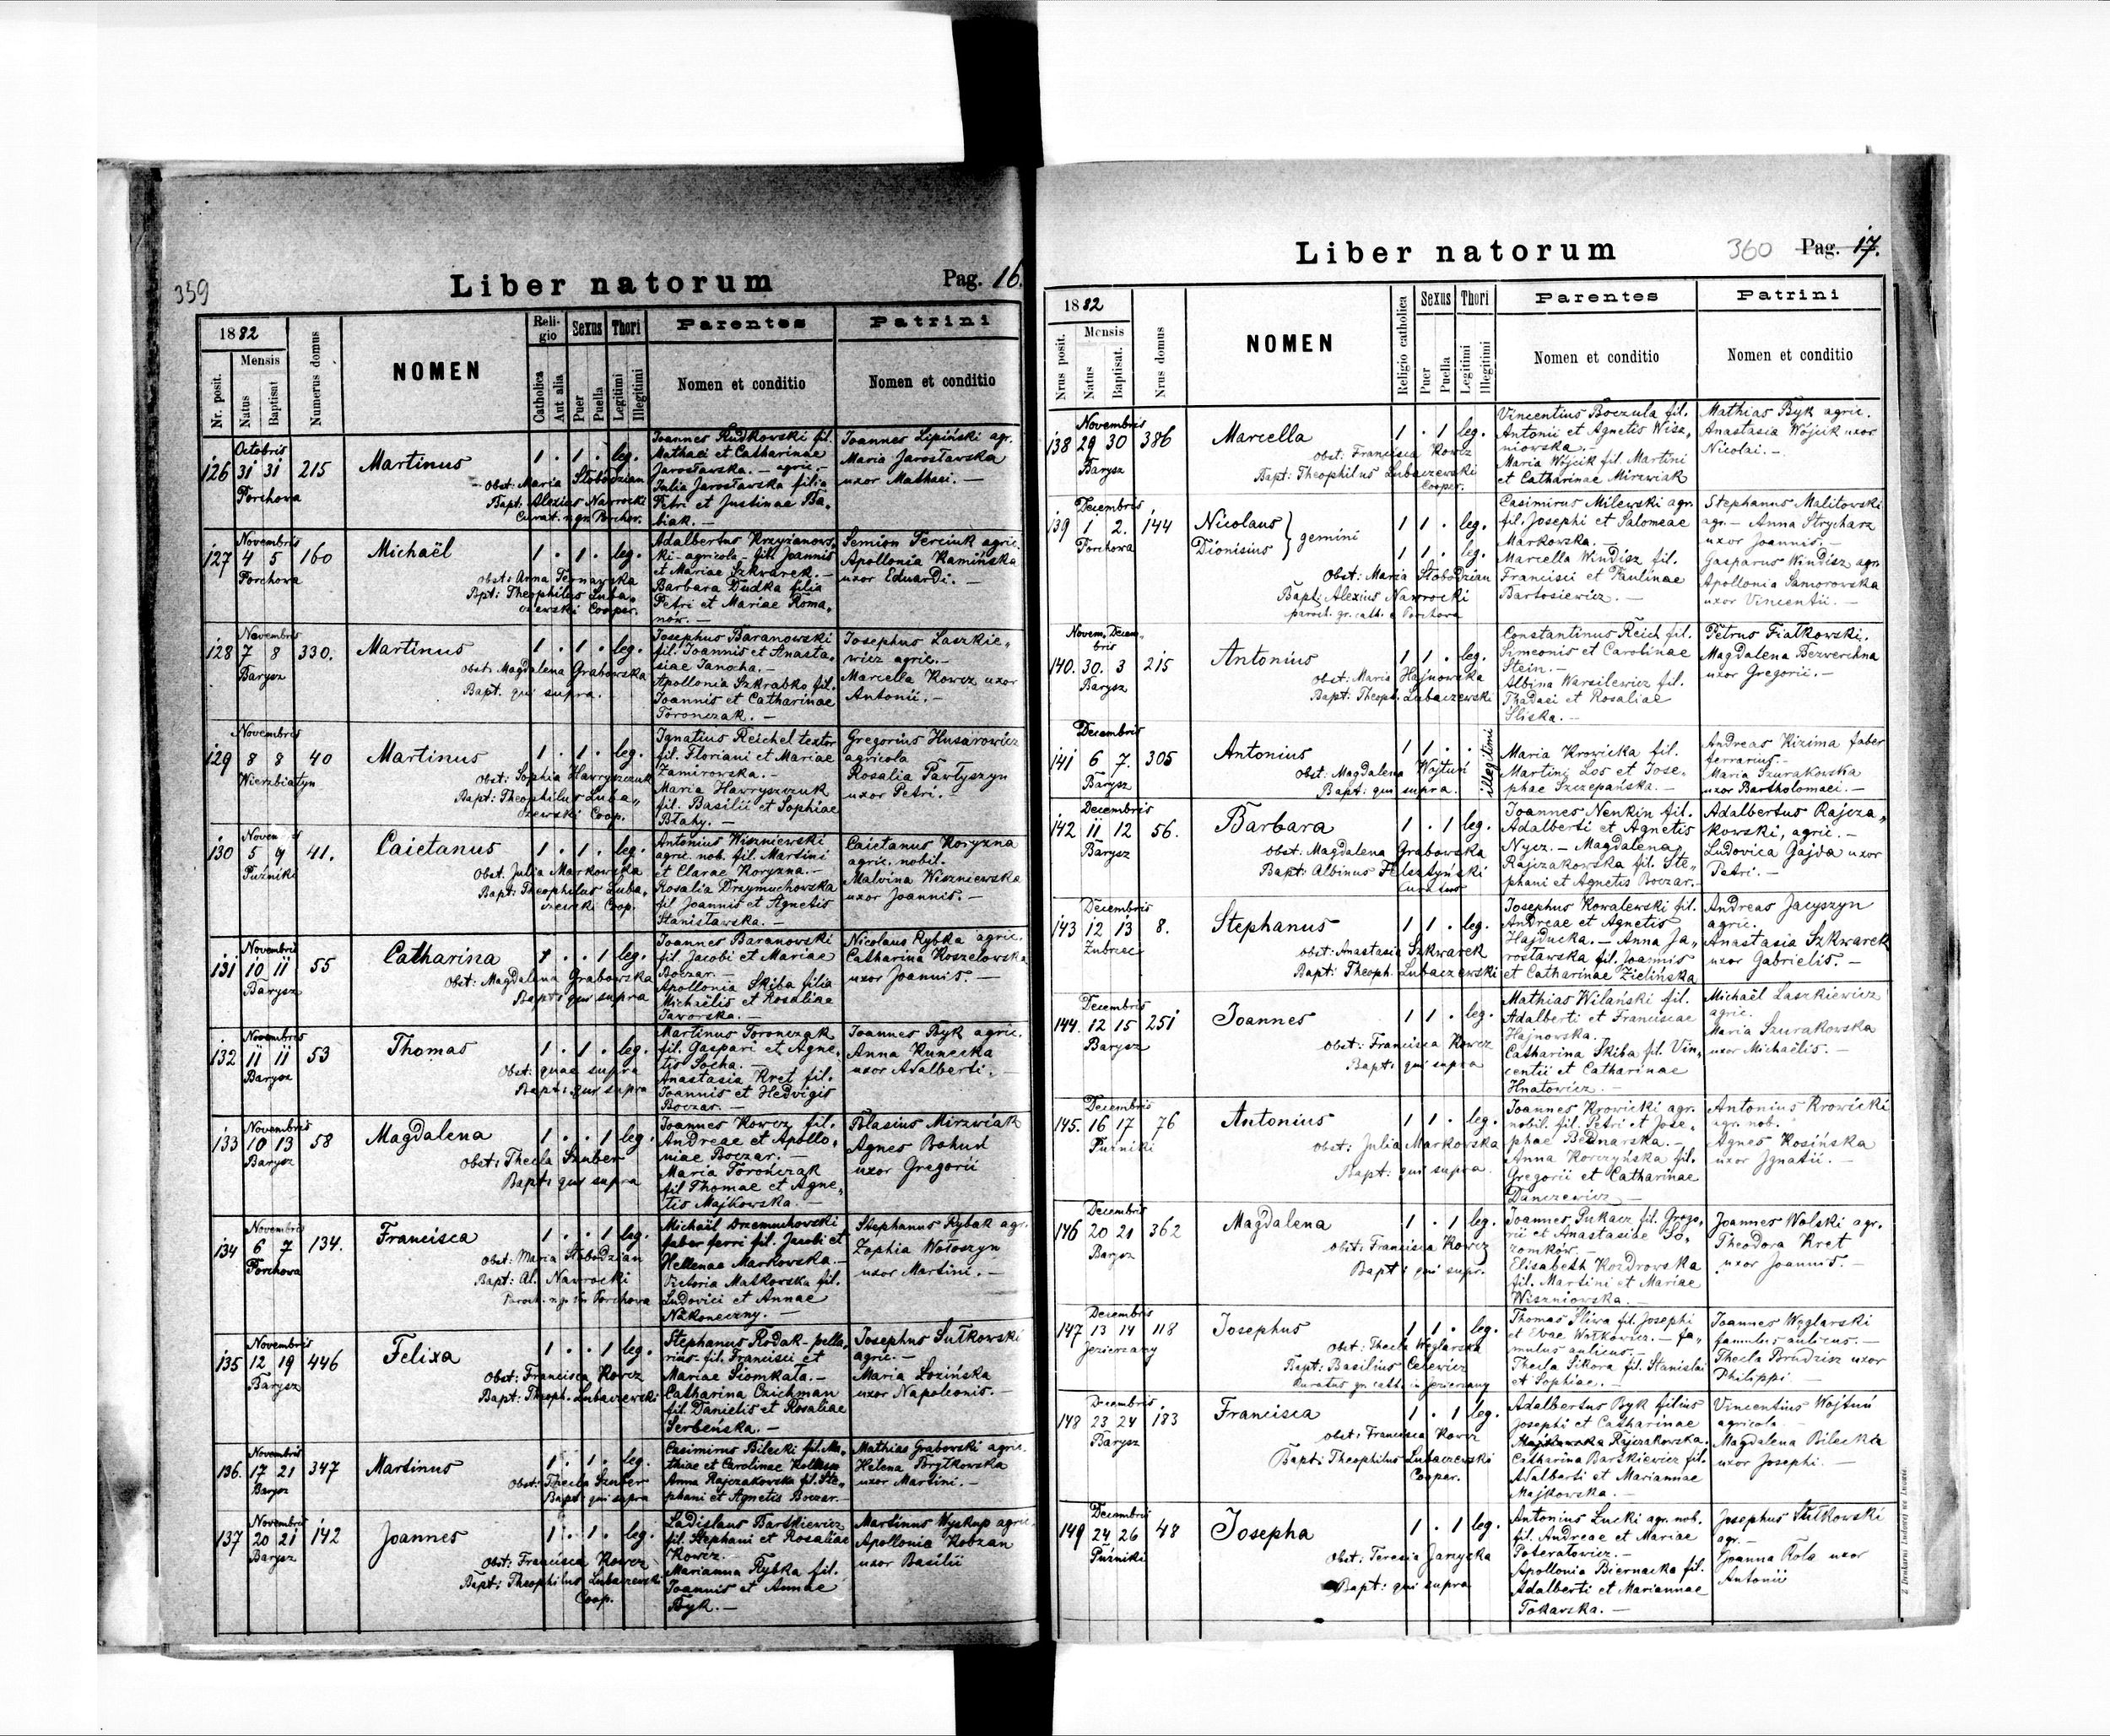 359
Liber natorum
Pag. 16.
1882
Nr. posit.
Mensis
Natus
Baptisat
Numerus domus
NOMEN
Religio
Catholica
Aut alia
Sexus
Puer
Puella
Thori
Legitimi
Illegitimi
Parentes
Nomen et conditio
Patrini
Nomen et conditio
126
Octobris
31 31
Porchova
215
Martinus
1 . 1 . leg.
Obst: Maria Słobodzian
Bapt: Alexius Nawrocki
Curat. r. gr. Porchov.
Joannes Rudkowski fil.
Mathaei et Catharinae
Jarosławska. – agric. –
Julia Jarosławska filia
Petri et Justinae Ba„
biak. –
Joannes Lipiński agr.
Maria Jarosławska
uxor Mathaei. –
127
Novembris
4 5
Porchova
160
Michaël
1 . 1 . leg.
Obst: Anna
Bpt: Theophilus Luba„
czewski Cooper.
Adalbertus Krzyżanows„
ki – agricola – fil. Joannis
et Mariae Szkwarek. –
Barbara Dudka filia
Petri et Mariae Roma„
nów. –
Semion Terciuk agric.
Apollonia Kamińska
uxor Eduardi. –
128
Novembris
7 8
Barysz
330.
Martinus
1 . 1 . leg.
Obst: Magdalena Grabowska
Bapt. qui supra. –
Josephus Baranowski
fil. Joannis et Anasta„
siae Janocha. –
Apollonia Szkrabko fil.
Joannis et Catharinae
Toronczak. –
Josephus Laszkie„
wicz agric. –
Marcella Kowcz uxor
Antonii. –
129
Novembris
8 8
Wierzbiatyn
40
Martinus
1 . 1 . leg.
Obst: Sophia Hawryszczuk
Bapt: Theophilus Luba„
czewski Coop.
Ignatius Reichel textor
fil. Floriani et Mariae
Zamirowska. –
Maria Hawryszczuk
fil. Basilii et Sophiae
Błahy. –
Gregorius Husarowicz
agricola
Rosalia Pawłyszyn
uxor Petri.
130
Noven
5 9
Puźniki
41.
Caietanus
1 . 1 . leg.
Obst. Julia Markowska
Bapt: Theophilus Luba„
czewski Coop.
Antonius Wiszniewski
agric. nob. fil. Martini
et Clarae Koryzna. –
Rosalia Drzymuchowska
fil Joannis et Agnetis
Stanisławska. –
Caietanus Koryzna
agric. nobil.
Malvina Wiszniewska
uxor Joannis. –
131
Novembris
10 11
Barysz
55
Catharina
1 . . 1 leg.
Obst: Magdalena Grabowska
Bapt: qui supra
Joannes Baranowski
fil Jacobi et Mariae
Boczar. –
Apollonia Skiba filia
Michaëlis et Rosaliae
Jaworska. –
Nicolaus Rybka agric.
Catharina Koszelowska
uxor Joannis. –
132
Novembris
11 11
Barysz
53
Thomas
1 . 1 . leg.
Obst: quae supra
Bapt: qui supra
Martinus Toronczak
fil. Gaspari et Agne„
tis Socha. –
Anastasia Kret fil.
Joannis et Hedvigis
Boczar. –
Joannes Byk agric.
Anna Kunecka
uxor Adalberti. –
133
Novembris
10 13
Barysz
58
Magdalena
1 . . 1 leg.
Obst: Thecla Szuber
Bapt: qui supra
Joannes Kowcz fil.
Andreae et Apollo„
niae Boczar. –
Maria Torończak
fil Thomae et Agne„
tis Majkowska. –
Blasius Mirzwiak
Agnes Bohud
uxor Gregorii
134
Novembris
6 7
Porchova
134.
Francisca
1 . . 1 leg.
Obst: Maria Słobodzian
Bapt: Al. Nawrocki
Paroch. r. gr. in Porchova
Michaël Drzemuchowski
faber ferri fil. Jacobi et
Hellenae Markowska. –
Victoria Matkowska fil.
Ludovici et Annae
Nakoneczny. –
Stephanus Rybak agr.
Zophia Wołoszyn
uxor Martini. –
135
Novembris
12 19
Barysz
446
Felixa
1 . . 1 leg.
Obst: Francisca Kowcz
Bapt: Theoph. Lubaczewski
Stephanus Rodak – pella„
rius – fil. Francisci et
Mariae Siomkała. –
Catharina Czichman
fil. Danielis et Rosaliae
Serbeńska. –
Josephus Sułkowski
agric. –
Maria Łozińska
uxor Napoleonis. –
136.
Novembris
17 21
Barysz
347
Martinus
1 . 1 . leg.
Obst: Thecla Szuber
Bapt: qui supra
Casimirus Bilecki fil. Ma„
thiae et Carolinae
Anna Rajczakowska fil. Ste„
phani et Agnetis Boczar. –
Mathias Grabowski agric.
Helena Brytkowska
uxor Martini. –
137
Novembris
20 21
Barysz
142
Joannes
1 . 1 . leg.
Obst: Francisca Kowcz
Bapt: Theophilus Lubaczewski
Coop.
Ladislaus Bartkiewicz
fil. Stephani et Rosaliae
Kowcz. –
Marianna Rybka fil.
Joannis et Annae
Byk. –
Martinus Wyskup agric
Apollonia Kobzan
uxor Basilii
Liber natorum
360 Pag. 17.
1882
Nrus posit.
Mensis
Natus
Baptisat.
Nrus domus
NOMEN
Religio catholica
Sexus
Puer
Puella
Thori
Legitimi
Illegitimi
Parentes
Nomen et conditio
Patrini
Nomen et conditio
138
Novembris
29 30
Barysz
386
Marcella
1 . 1 leg.
Obst. Francisca Kowcz
Bapt: Theophilus Lubaczewski
Cooper.
Vincentius Boczula fil.
Antonii et Agnetis Wisz„
niowska. –
Maria Wójcik fil. Martini
et Catharinae Mirzwiak
Mathias Byk agric.
Anastasia Wójcik uxor
Nicolai. –
139
Decembris
1 2.
Porchowa
144
Nicolaus
Dionisius } gemini
1 1 . leg.
1 1 . leg.
Obst: Maria Słobodzian
Bapt: Alexius Nawrocki
paroch. gr. cath. e Porchova
Casimirus Milewski agr.
fil. Josephi et Salomeae
Markowska. –
Marcella Windisz fil.
Francisci et Paulinae
Bartosiewicz. –
Stephanus Malitowski
agr. – Anna Strycharz
uxor Joannis. –
Gasparus Windisz agr.
Apollonia Samorowska
uxor Vincentii. –
140.
Novem. Decem„
bris
30. 3
Barysz
215
Antonius
1 1 . leg.
Obst: Maria Hajnowska
Bapt: Theoph. Lubaczewski
Constantinus Reich fil.
Simeonis et Carolinae
Stein. –
Albina Wasilewicz fil.
Thadaei et Rosaliae
Śliska. –
Petrus Fiałkowski.
Magdalena Bezverchna
uxor Gregorii. –
141
Decembris
6 7.
Barysz
305
Antonius
1 1 . . illegitimi
Obst: Magdalena Wojtuń
Bapt: qui supra.
Maria Krowicka fil.
Martini Los et Jose„
phae Szczepańska. –
Andreas Kizima faber
ferrarius. –
Maria Szurakowska
uxor Bartholomaei. –
142
Decembris
11 12
Barysz
56.
Barbara
1 . 1 leg.
Obst: Magdalena Grabowska
Bapt: Albinus Felsztyński
Curatus
Joannes Nenkin fil.
Adalberti et Agnetis
Nycz. – Magdalena
Rajczakowska fil. Ste„
phani et Agnetis Boczar. –
Adalbertus Rajcza„
kowski, agric. –
Ludovica Gajda uxor
Petri. –
143
Decembris
12 13
Zubrzec
8.
Stephanus
1 1 . leg.
Obst: Anastasia Szkwarek
Bapt: Theoph. Lubaczewski
Josephus Kowalewski fil.
Andreae et Agnetis
Hajducka. – Anna Ja„
rosławska fil. Joannis
et Catharinae Zielińska
Andreas Jacyszyn
agric.
Anastasia Szkwarek
uxor Gabrielis. –
144.
Decembris
12 15
Barysz
251
Joannes
1 1 . leg.
Obst: Francisca Kowcz
Bapt: qui supra
Mathias Wilański fil.
Adalberti et Franciscae
Hajnowska.
Catharina Skiba fil. Vin„
centii et Catharinae
Hnatowicz. –
Michaël Laszkiewicz
agric.
Maria Szurakowska
uxor Michaelis. –
145.
Decembris
16 17
Puźniki
76
Antonius
1 1 . leg.
Obst: Julia Markowska
Bapt: qui supra.
Joannes Krowicki agr.
nobil. fil. Petri et Jose„
phae Bednarska. –
Anna Korczyńska fil.
Gregorii et Catharinae
Danczewicz. –
Antonius Krowicki
agr. nob.
Agnes Kosińska
uxor Ignatii. –
146
Decembris
20 21
Barysz
362
Magdalena
1 . 1 leg.
Obst: Francisca Kowcz
Bapt: qui supr.
Joannes Pukacz fil. Grego„
rii et Anastasiae So„
zomków. –
Elisabeth Kozdrowska
fil. Martini et Mariae
Wiszniowska. –
Joannes Wolski agr.
Theodora Kret
uxor Joannis. –
147
Decembris
13 14
Jezierzany
118
Josephus
1 1 . leg.
Obst: Thecla Węglarska
Bapt: Basilius Celewicz
Curatus gr. cath. in Jezierzany
Thomas Śliva fil. Josephi
et Evae Wołkowicz. – fa„
mulus aulicus. –
Thecla Sikora fil. Stanislai
et Sophiae. –
Joannes Węglarski
famulus aulicus. –
Thecla Brudzisz uxor
Philippi. –
148
Decembris
23 24
Barysz
183
Francisca
1 . 1 leg.
Obst: Francisca Kowcz
Bapt: Theophilus Lubaczewski
Cooper.
Adalbertus Byk filius
Josephi et Catharinae
Rajczakowska.
Catharina Bartkiewicz fil.
Adalberti et Mariannae
Majkowska. –
Vincentius Wojtuń
agricola –
Magdalena Bilecka
uxor Josephi. –
149
Decembris
24 26
Puźniki
48
Josepha
1 . 1 leg.
Obst: Teresia Janycka
Bapt: qui supra
Antonius Łucki agr. nob.
fil. Andreae et Mariae
Poteratowicz. –
Apollonia Biernacka fil.
Adalberti et Mariannae
Tokarska. –
Josephus Sułkowski
agr. –
Joanna Rola uxor
Antonii
Z Drukarni Ludowej we Lwowie.